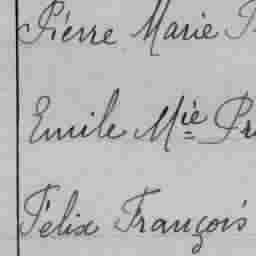 Pierre Marie
Emile Mie
Félix François